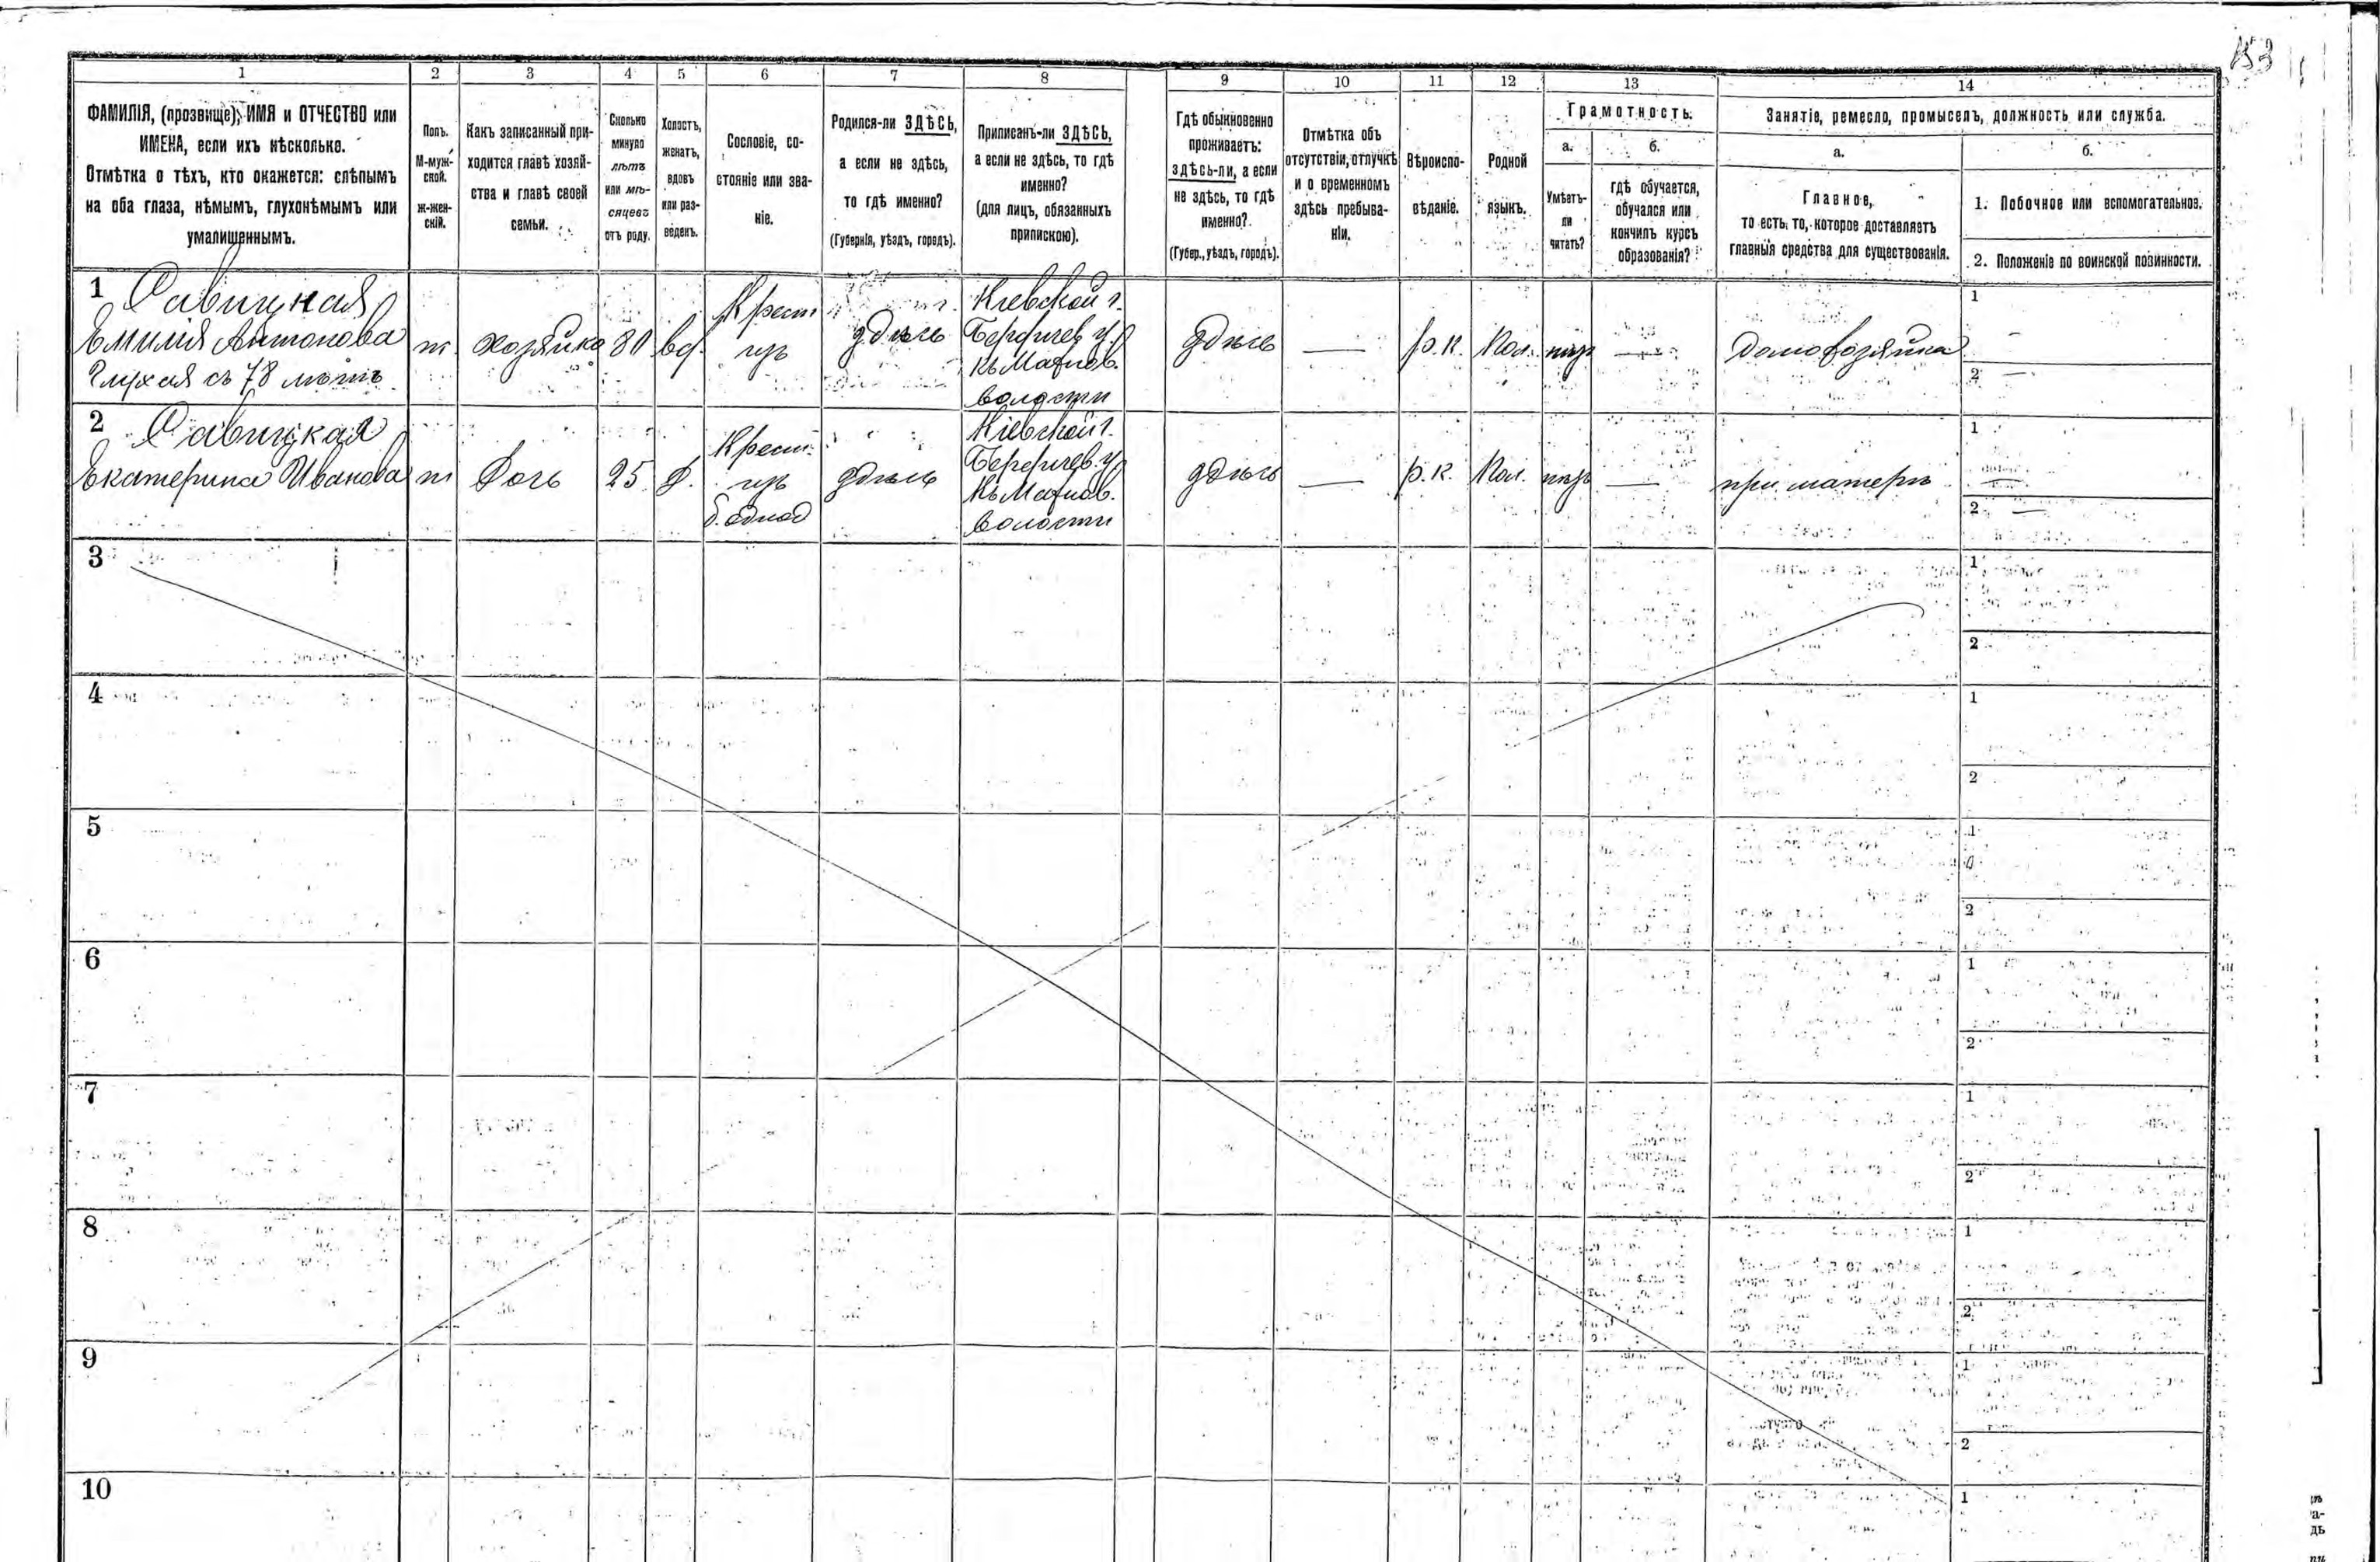 153
1
2
3
4
5
6
7
8
9
10
11
12
13
14
ФАМИЛІЯ, (прозвище), ИМЯ и ОТЧЕСТВО или
ИМЕНА, если ихъ нѣсколько.
Отмѣтка о тѣхъ, кто окажется: слѣпымъ
на оба глаза, нѣмымъ, глухонѣмымъ или
умалишеннымъ.
Полъ.
М-муж-
ской.
Ж-жен-
скій.
Какъ записанный при-
ходится главѣ хозяй-
ства и главѣ своей
семьи.
Сколько
минуло
лѣтъ
или мѣ-
сяцевъ
отъ роду.
Холостъ,
женатъ,
вдовъ
или раз-
веденъ.
Сословіе, со-
стояніе или зва-
ніе.
Родился-ли ЗДѢСЬ,
а если не здѣсь,
то гдѣ именно?
(Губернія, уѣздъ, городъ).
Приписанъ-ли ЗДѢСЬ,
а если не здѣсь, то гдѣ
именно?
(для лицъ, обязанныхъ
припискою).
Гдѣ обыкновенно
проживаетъ:
здѣсь-ли, а если
не здѣсь, то гдѣ
именно?
(Губер., уѣздъ, городъ).
Отмѣтка объ
отсутствіи, отлучкѣ
и о временномъ
здѣсь пребыва-
ніи.
Вѣроиспо-
вѣданіе.
Родной
языкъ.
Грамотность.
а.
Умѣетъ-
ли
читать?
б.
гдѣ обучается,
обучался или
кончилъ курсъ
образованія?
Занятіе, ремесло, промыселъ, должность или служба.
а.
Главное,
то есть то, которое доставляетъ
главныя средства для существованія.
б.
1. Побочное или вспомогательное.
2. Положеніе по воинской повинности.
1
Савицкая
Емилія Антонова
Глухая съ 78 лѣтъ
ж.
хозяйка
80
вд.
Крест
изъ
здѣсь
Кіевской г.
Бердичев у.
къ Махнов.
волости
здѣсь
—
р.к.
Пол.
—
домохозяйка
1
—
2
—
2
Савицкая
Екатерина Ивановa
ж
дочь
25
д.
Крест.
изъ
б. однод
здѣсь
Кіевской г.
Бердичев. у.
къ Махнов.
волости
здѣсь
—
р.к.
Пол.
—
при матери
1
—
2
—
3
1
2
4
1
2
5
1
2
6
1
2
7
1
2
8
1
2
9
1
2
10
1